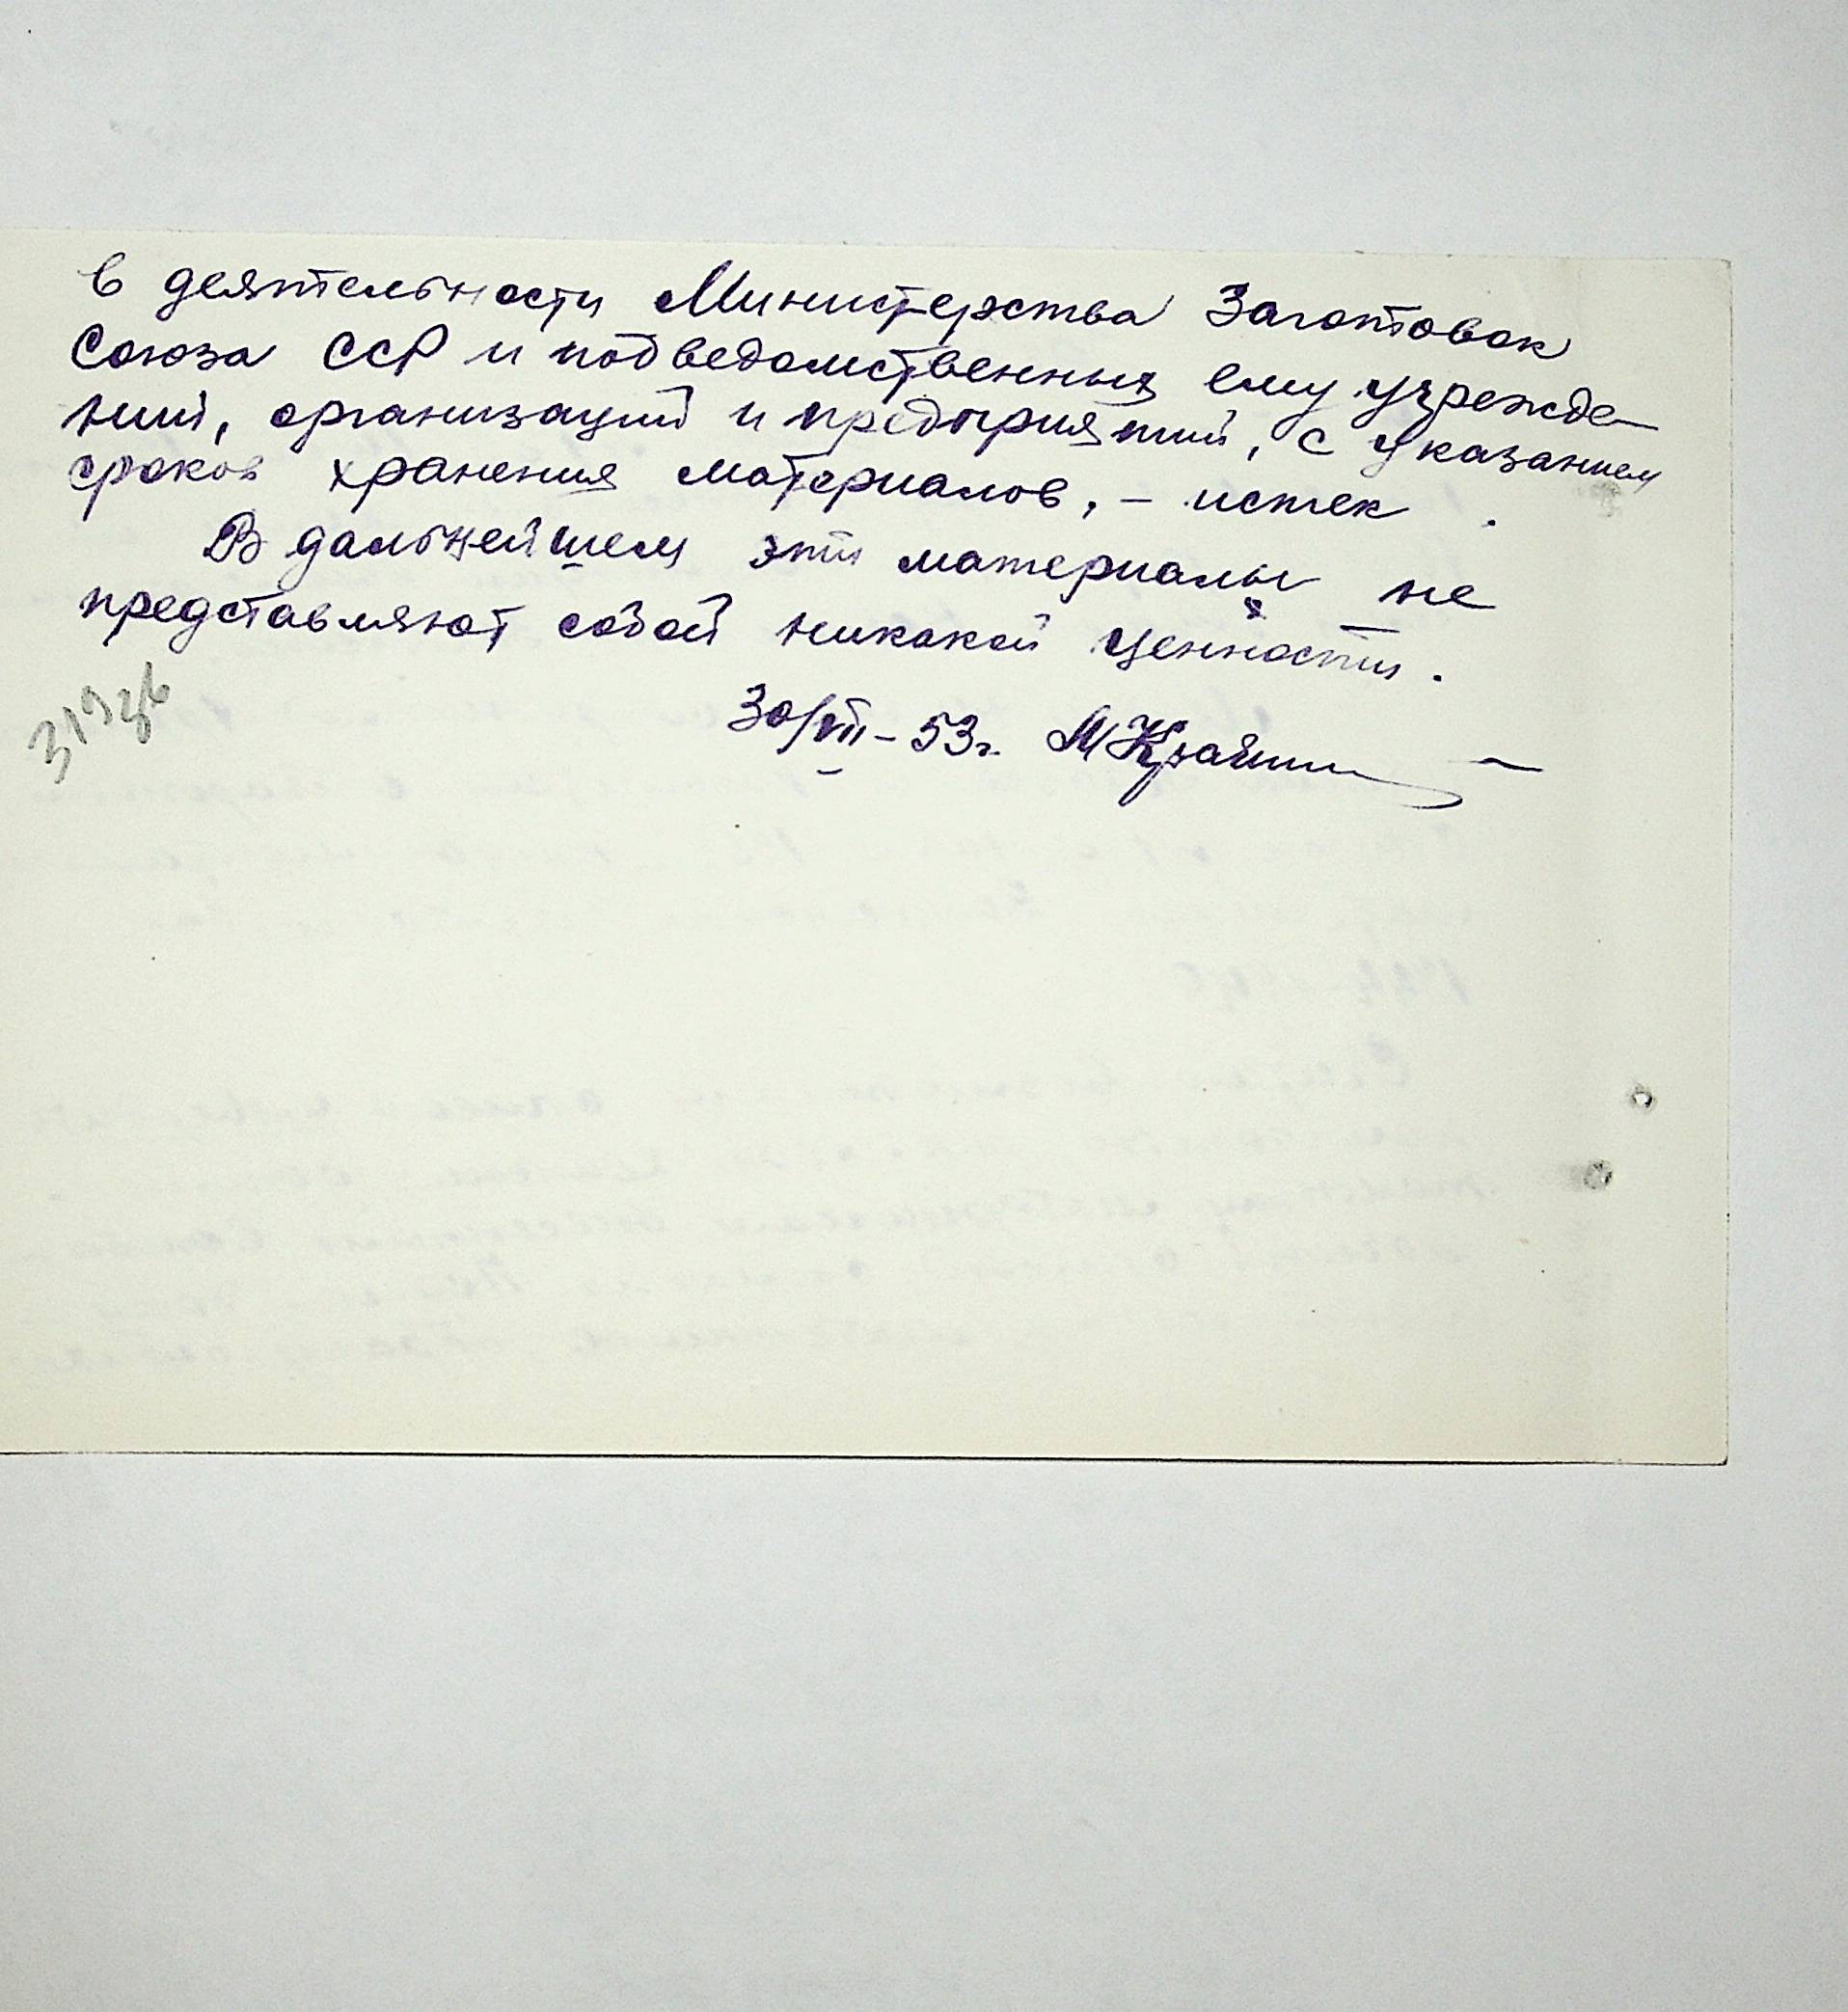 в деятельности Министерства Заготовок
Союза ССР и подведомственных ему учрежде-
ний, организаций и предприятий, с указанием
сроков хранения материалов, - истек.
В дальнейшем эти материалы не
представляют собой никакой ценности.
30/VII-53г.